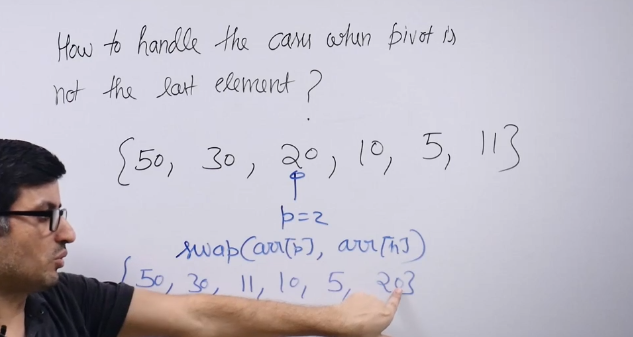 How to handle the case when pivot is
not the last element ?
{50, 30, 20, 10, 5, 11}
p=2
swap(arr[p], arr[h])
{50, 30, 11, 10, 5, 20}